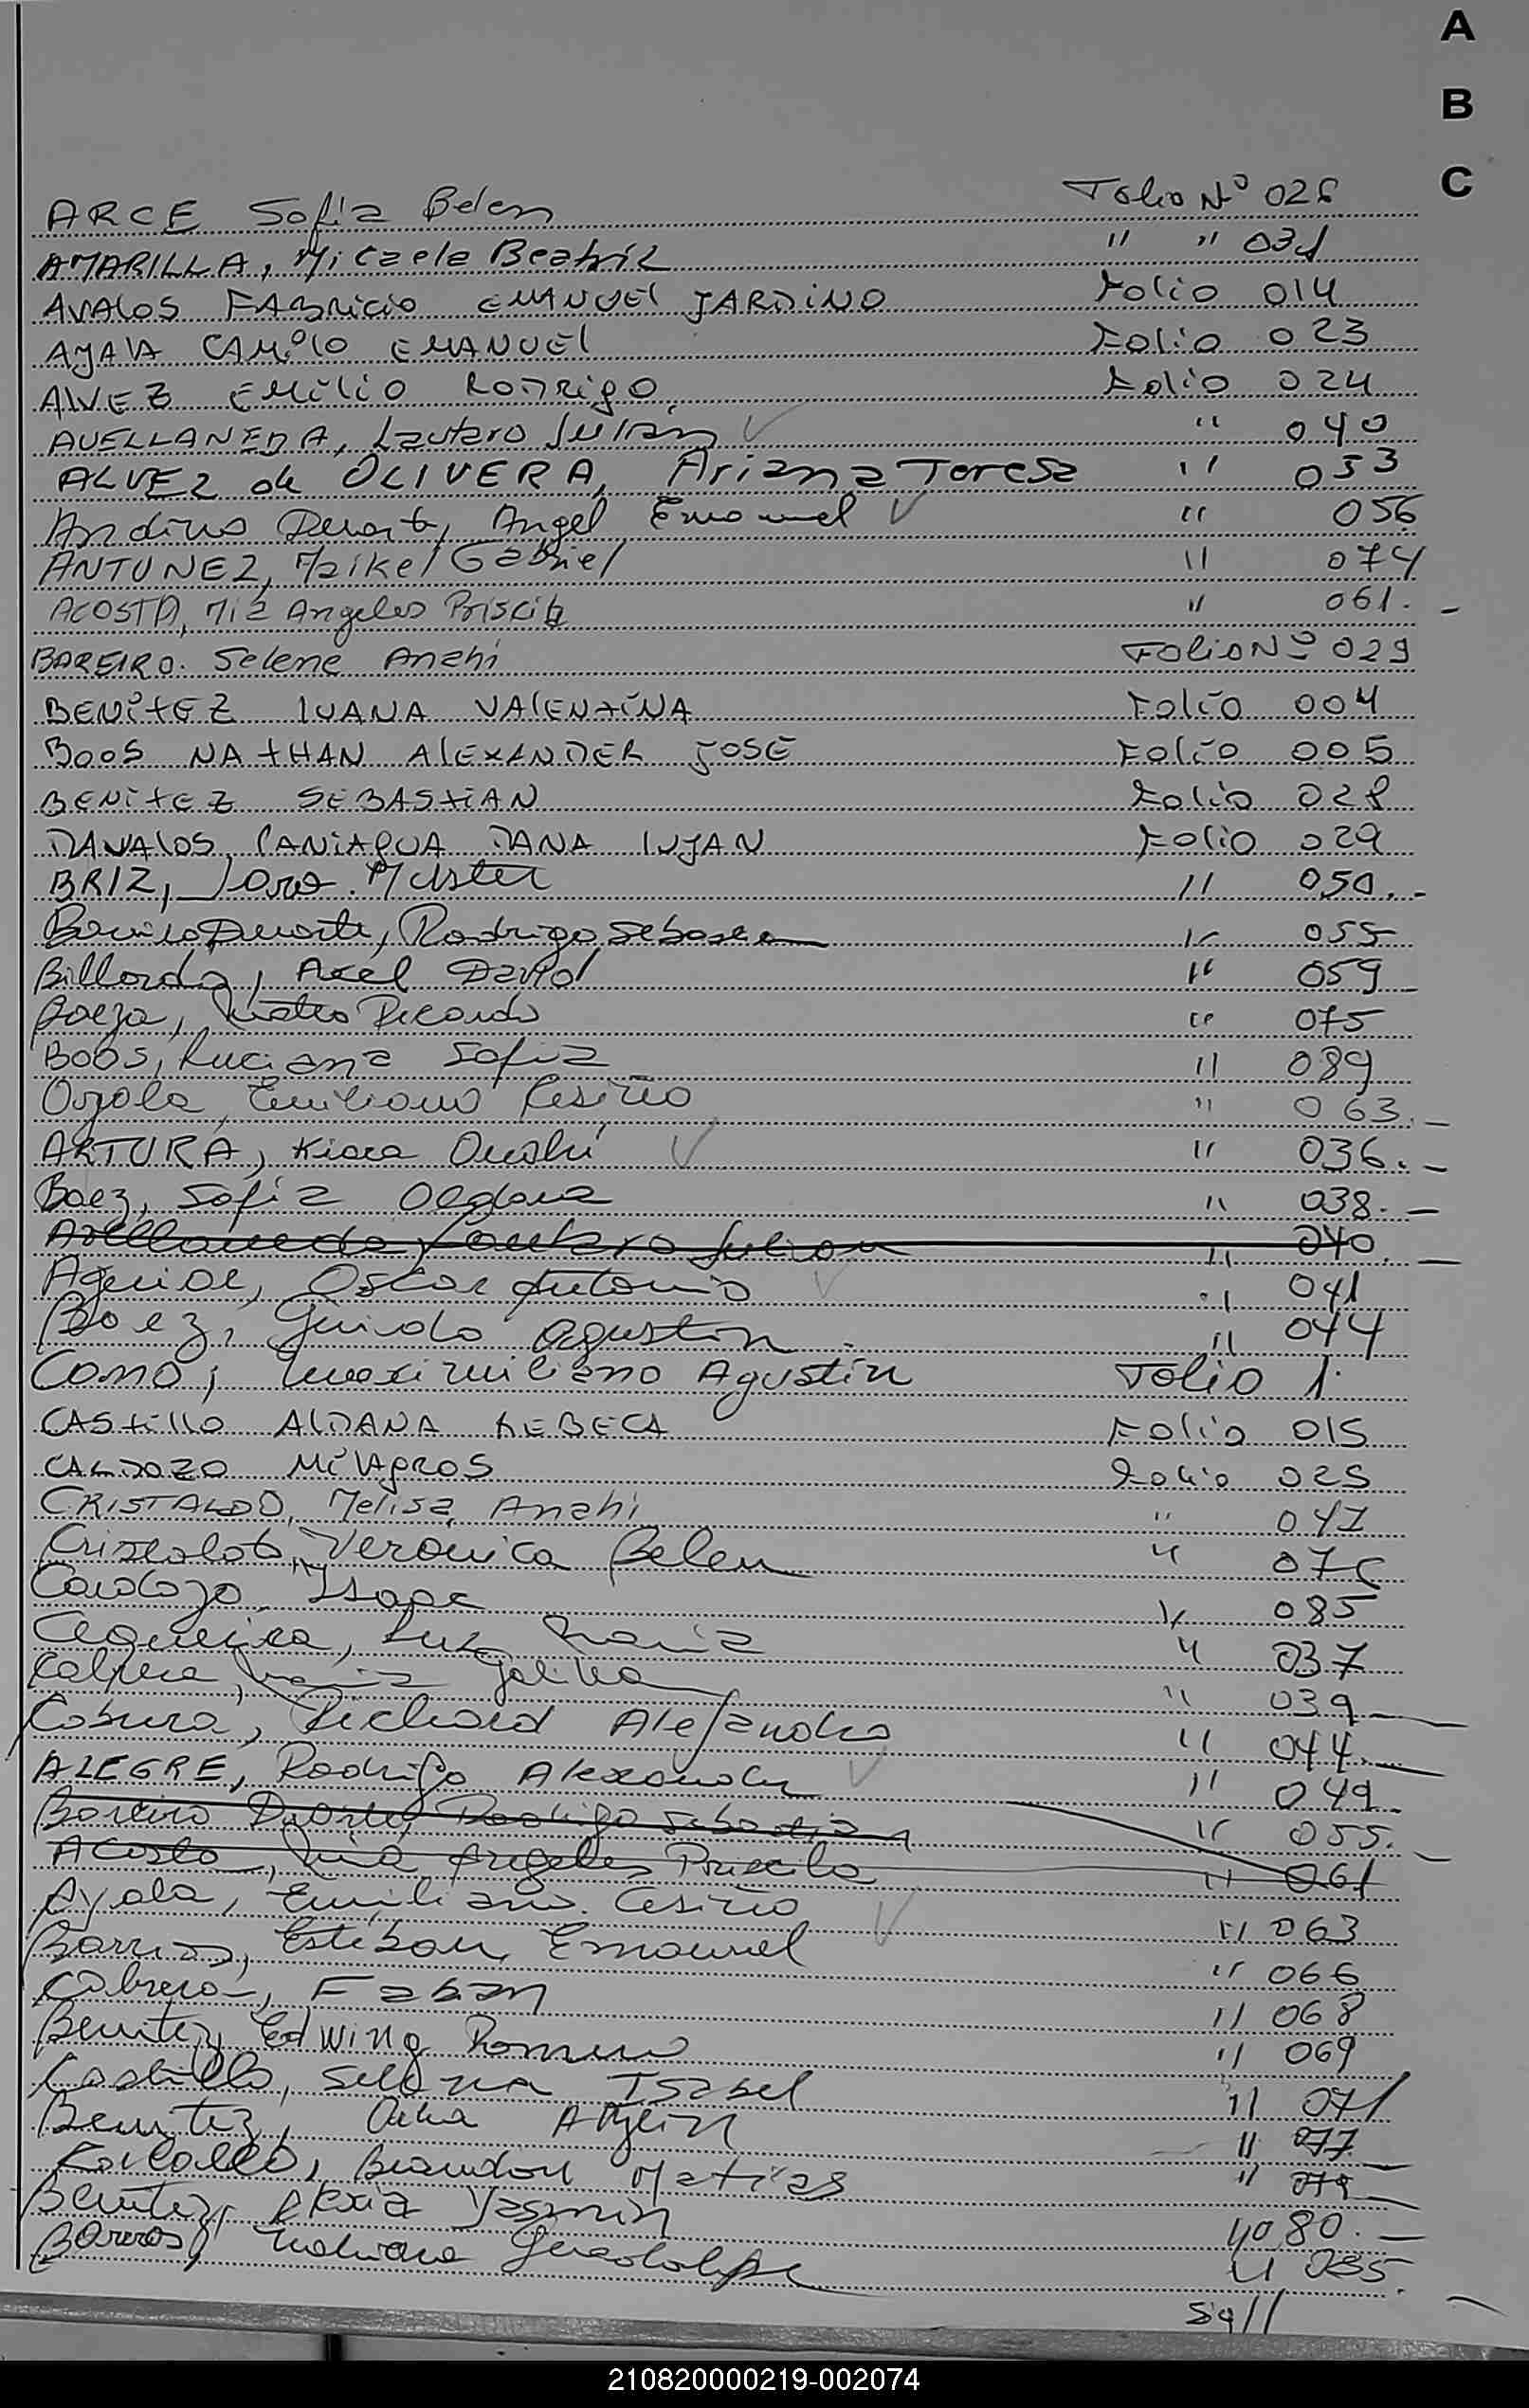 A
B
C
ARCE Sofia Belen Folio Nº 026
AMARILLA, Micaela Beatriz " " 031
AVALOS FABRICIO EMANUEL JARDINO Folio 014
AYALA CAMILO EMANUEL Folio 023
ALVEZ EMILIO RODRIGO, Folio 024
AVELLANEDA, Lautaro Julian " 040
ALVEZ de OLIVERA, Ariana Teresa " 053
Andino Duarte, Angel Emanuel " 056
ANTUNEZ, Maikel Gabriel " 074
ACOSTA, Mia Angeles Priscila " 061.
BAREIRO. Selene Anahi Folio Nº 029
BENITEZ IVANA VALENTINA Folio 004
BOOS NATHAN ALEXANDER JOSÉ Folio 005
BENITEZ SEBASTIAN Folio 028
DAVALOS PANIAGUA DANA LUJAN Folio 029
BRIZ, " 050.
Bareiro Duarte, Rodrigo Sebastian " 055
Axel David " 059
Baeza, Mateo Ricardo " 075
Boos, Luciana Sofia " 089
Emiliano Cesiño " 063.
ARTURA, Kiara " 036.
Baez, Sofia Oldana " 038.
Avellaneda Lautaro Julian " 040.
Aguiar, Oscar Antonio " 041
Baez, Guido Agustin. " 044
Como, Maximiliano Agustín Folio 1.
CASTILLO ALDANA REBECA Folio 015
CARDOZO MILAGROS Folio 025
CRISTALDO, Melisa Anahi " 047
Veronica Belen " 076
Cardozo, " 085
Luz Maria " 037
Cabrera, " 039
Richard Alejandro " 044.
ALEGRE, Rodrigo Alexander " 049
Bareiro Duarte, Rodrigo Sebastian " 055.
Acosta, Mia Angeles Priscila " 061
Ayala, Emiliano Cesiño " 063
Barrios, Esteban Emanuel " 066
Cabrera, Fabian " 068
Benitez, Edwing Romeo " 069
Castillo, Isabel " 071
Benitez, " 077
Brandon Matias "
Benitez, Alexia Yasmin " 080.
Barros, Guadalupe " 085.
Sig//
210820000219-002074